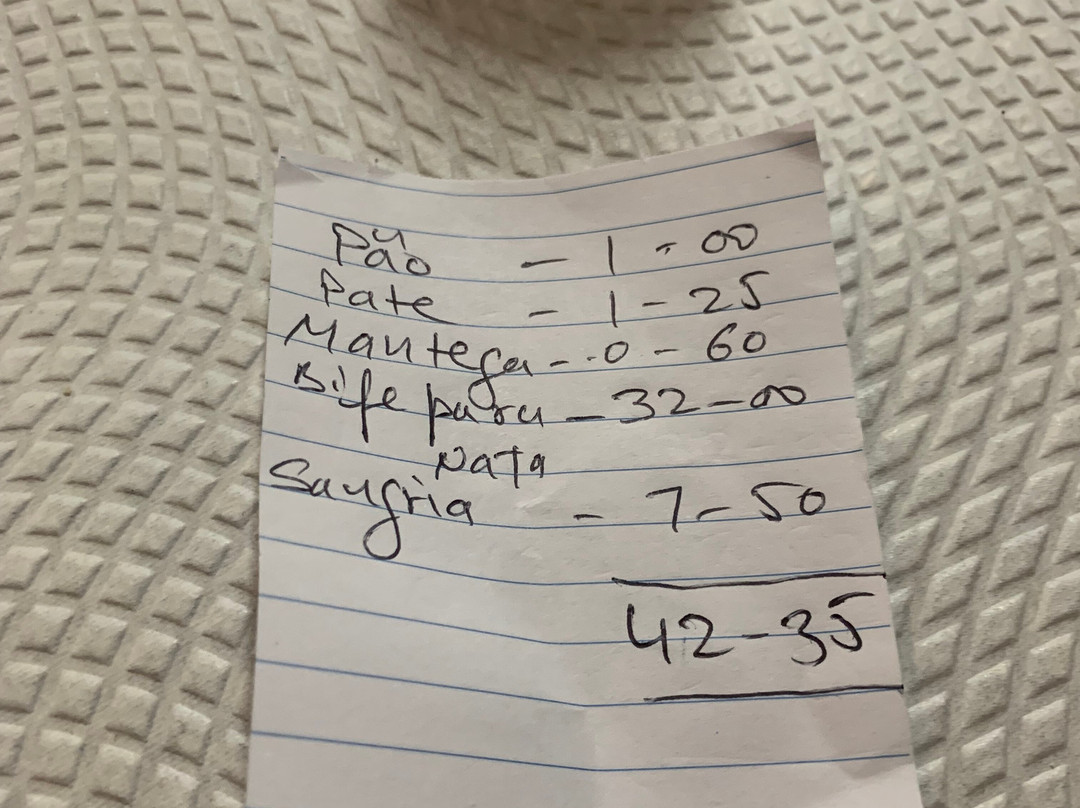 Pão - 1 - 00
Pate - 1 - 25
Mantega - 0 - 60
Bife para - 32 - 00
Nata
Sangria - 7 - 50
42 - 35